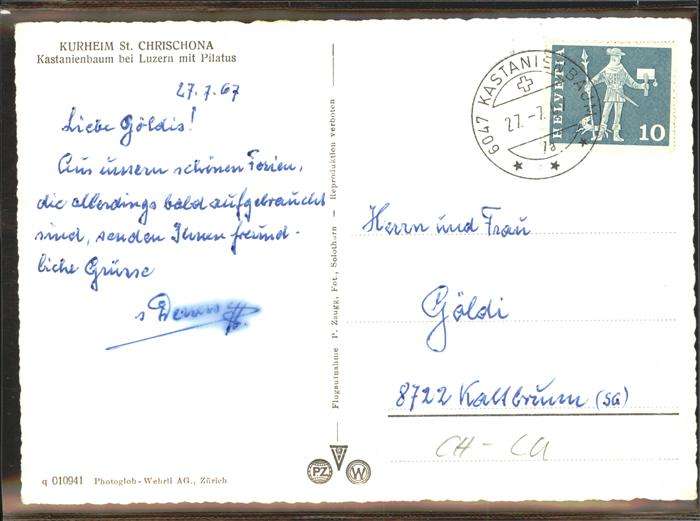 KURHEIM St. CHRISCHONA
Kastanienbaum bei Luzern mit Pilatus
27.7.67
Liebe Göldis!
Aus unsern schönen Ferien,
die allerdings bald aufgebraucht
sind, senden Ihnen freund-
liche Grüsse
s
Flugaufnahme P. Zaugg, Fot., Solothurn — Reproduktion verboten
6047 KASTANIENBAUM
27.-7.
HELVETIA
10
Herrn und Frau
Göldi
8722 Kaltbrunn (SG)
CH - LU
PZ
W
q 010941 Photoglob-Wehrli AG., Zürich